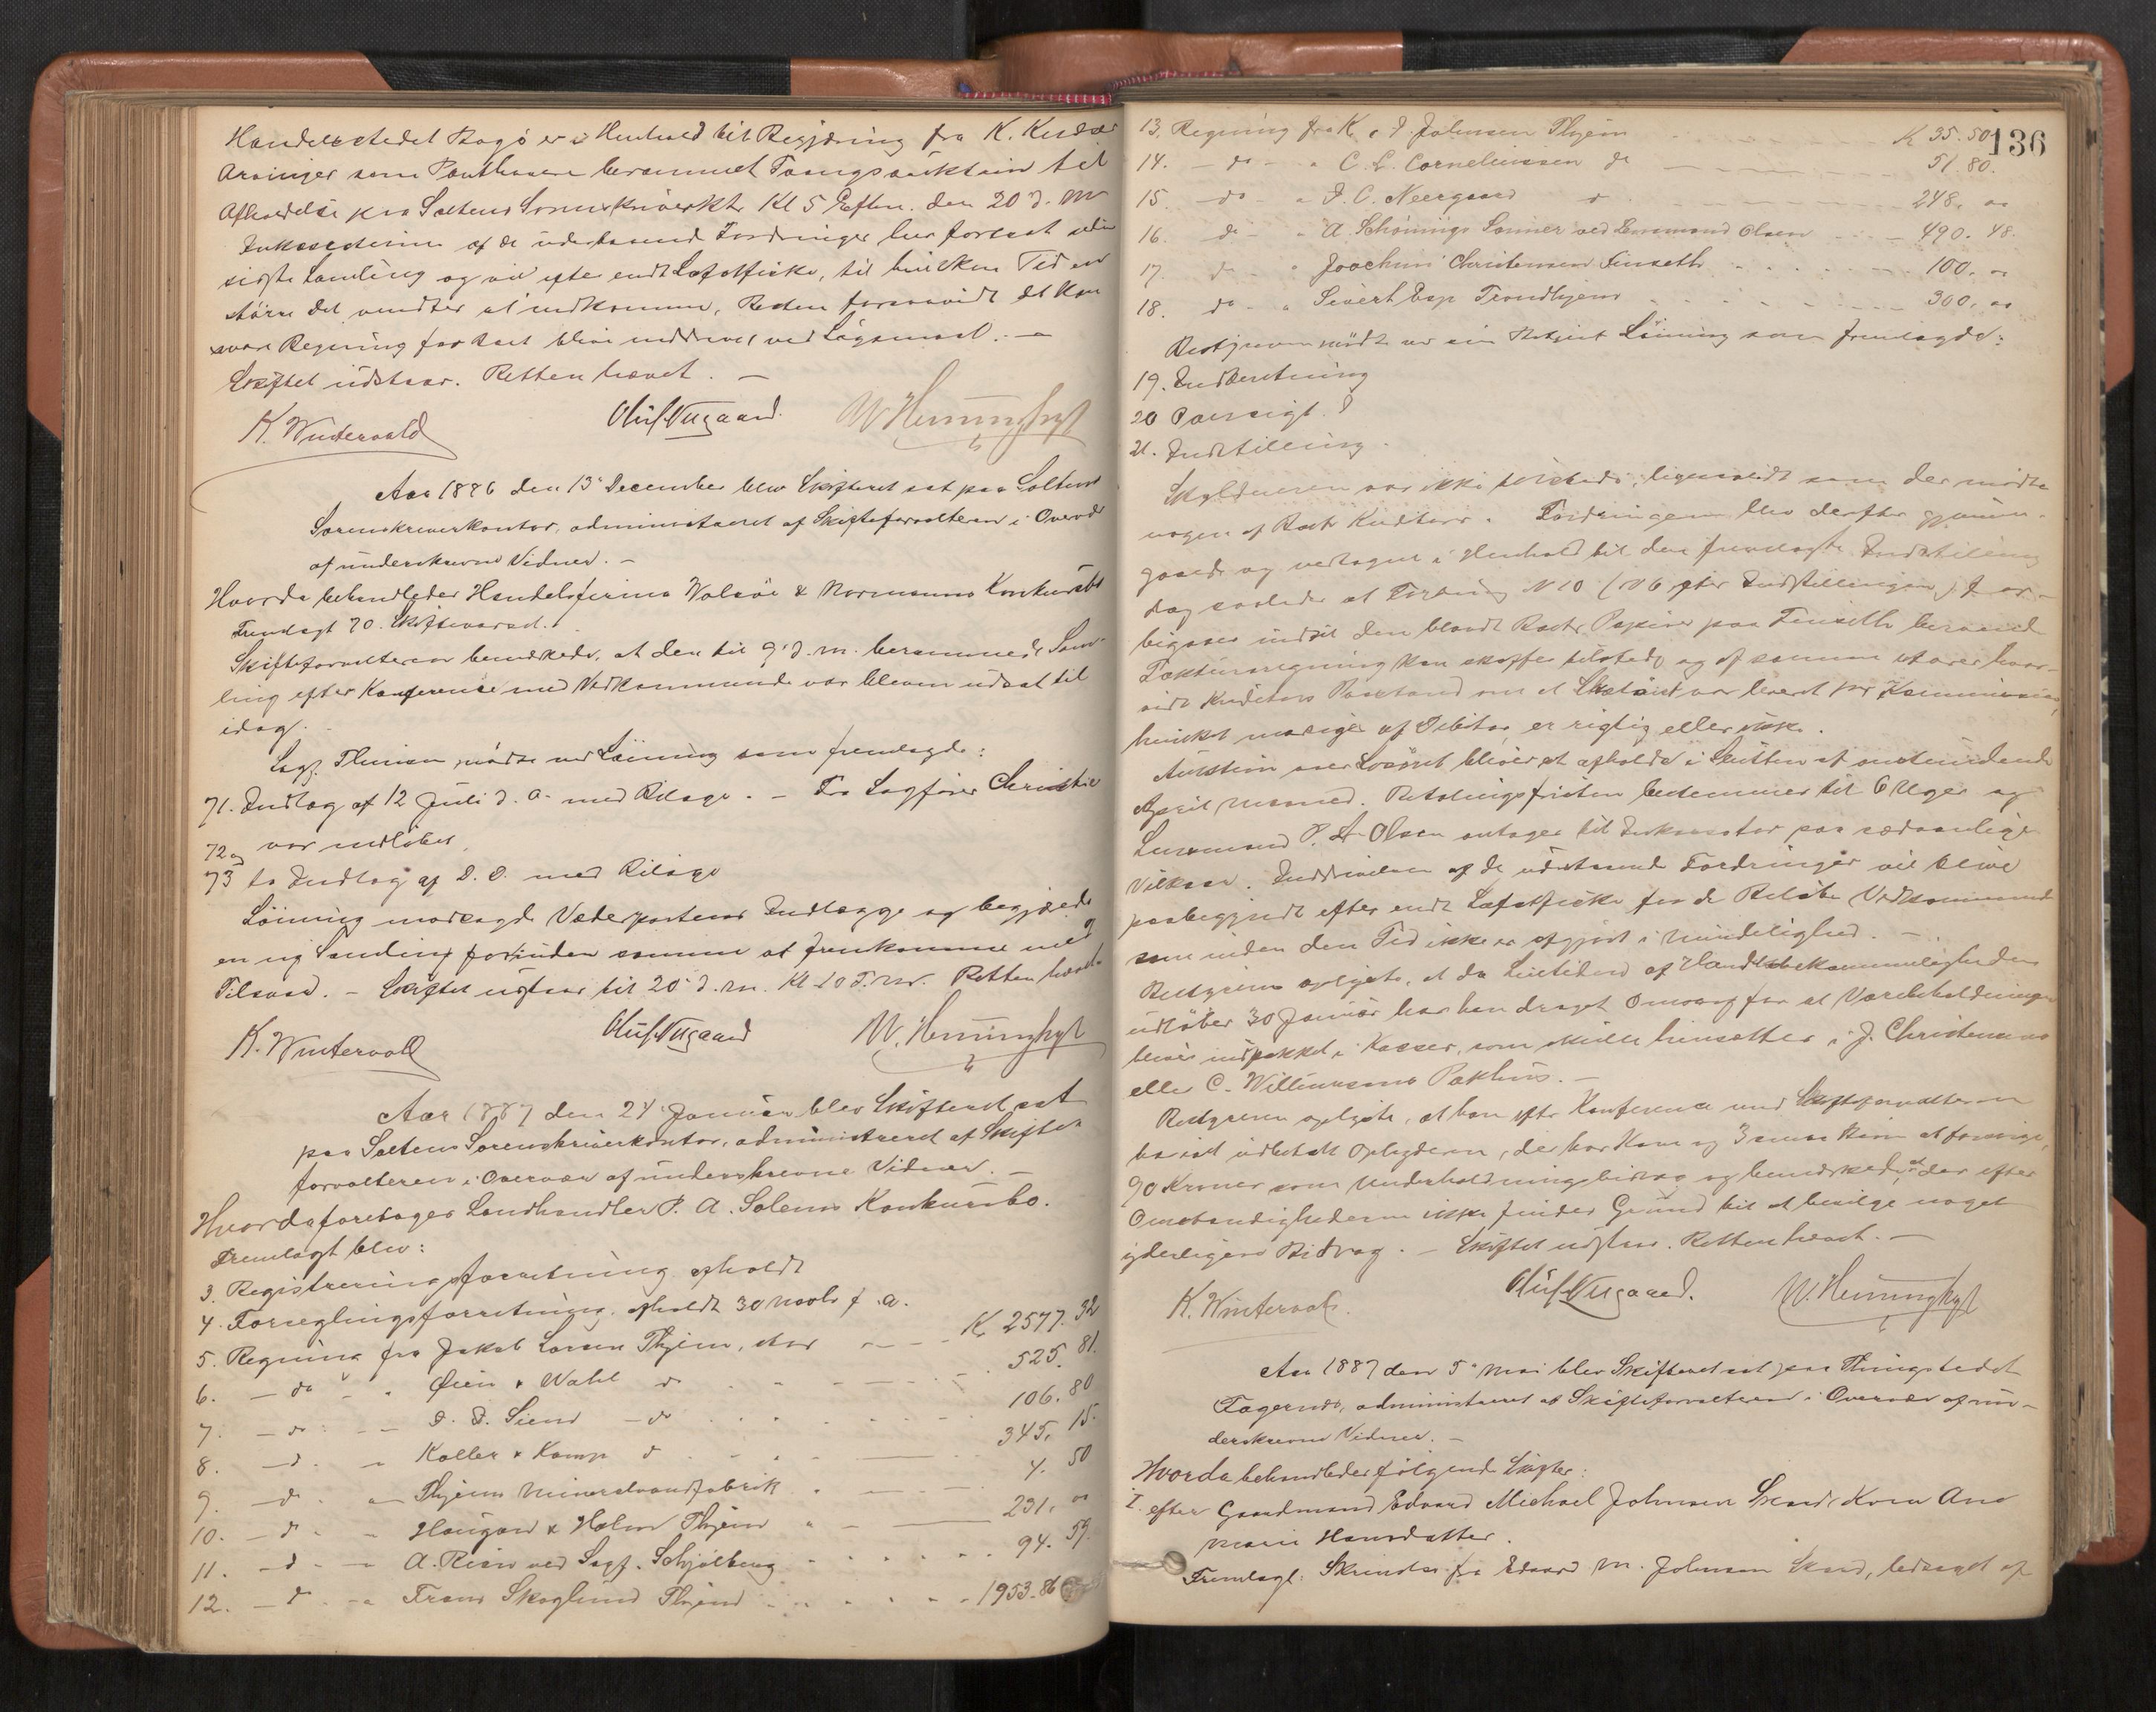 Handelsstedet Bogø er i Henhold til Begjæring fra K.
Arvinger som Panthavere berammet Tvangsauktion til
Afholdelse paa Saltens Sorenskriverktr Kl 5 Eftm. den 20 d. M
Inkassationen af de udestaaende Fordringer har fortsat siden
sidste Samling og vil efter endt Lofotfiske, til hvilken Tid en
større Del ventes at indkomme, Resten forsaavidt det kan
svare Regning for Boet blive inddrevet ved Lagsmaal. —
Skiftet udstaar. Retten hævet. —
K. Wintervold Oluf Aagaard W. Henninghyt
Aar 1886 den 13 December blev Skifteret sat paa Saltens
Sorenskriverkontor, administreret af Skifteforvalteren i Overvær
af underskrevne Vidner. —
Hvorda behandledes Handelsfirma Valsøe & Normanns Konkursbo
Fremlagt 70. Skiftevarsel.
Skifteforvalteren bemærkede, at den til 9 d. m. berammede Sam-
ling efter Konference med Vedkommende var bleven udsat til
idag.
Sagf. Thiesen mødte ved Løining som fremlagde:
71. Indlæg af 12 Juli d. a. med Bilage. — Fra Sagfører Christie
72 og var indløbet
73 to Indlæg af D. D. med Bilage
Løining modsagde Vederpartens Indlægge og begjærede
en ny Samling forinden samme at fremkomme med
Tilsvar. — Skiftet udstaar til 20 d. m. Kl 10 F.M. Retten hævet
K. Wintervold Oluf Aagaard W. Henninghyt
Aar 1887 den 24 Januar blev Skifteret sat
paa Saltens Sorenskriverkontor, administreret af Skifte-
forvalteren i Overvær af underskrevne Vidner. —
Hvorda foretages Landhandler P. A. Solems Konkursbo.
Fremlagt blev:
3. Registreringsforretning afholdt
4. Forseglingsforretning, afholdt 30 Novbr f. a.
5. Regning fra Jakob Larsen Thjem, stor K. 2577. 32
6. — do — " Øien & Wahl do 525. 81.
7. — do — — S. Siem — do 106. 80
8. — d — " Koller & Kamp d 345. 15.
9. — d — " Thjems Mineralvandfabrik 4. 50
10. — d — " Haugan & Holm Thjem 231. "
11. — d — " A. Rian ved Sagf. Schjølberg 94. 59.
12. — d — " Frans Skoglund Thjem 1953. 86
136
13. Regning fra K. & P. Johnsen Thjem K 35. 50
14. — do — " C. L. Corneliussen do 51. 80.
15. — do — " I. C. Neergaard d 248. "
16. — do — " A. Schønings Sønner ved Lensmand Olsen 490. 48.
17. — d — " Joachim Christensen Finseth 100. "
18. — do — " Sivert Esp Trondhjem 300. "
Bestyreren mødte ved sin Løining som fremlagde:
19. Indberetning
20 Oversigt. &
21. Indstilling.
Skyldneren var ikke tilstede, ligesaalidt som der mødte
nogen af Boets Kreditorer. Fordringerne blev derefter gjennem-
gaaede og vedtagne i Henhold til den fremlagte Indstilling
dog saaledes at Fordring N 10 (N 6 efter Indstillingen) for-
bigaaes indtil den blandt Boets Papirer paa Finseth beroende
Fakturaregning kan skaffes tilstede og af samme udsees hvor-
vidt Kreditors Paastand om at var leveret paa Kommission,
hvilket modsiges af Debitor, er rigtig eller ikke.
Auktion over Løsøret bliver at afholde i Slutten af anstundende
April Maaned. Betalingsfristen bestemmes til 6 Uger og
Lensmand P. A. Olsen antages til Inkassator paa sædvanlige
Vilkaar. Inddrivelsen af de udestaaende Fordringer vil blive
paabegyndt efter endt Lofotfiske for de Beløbs Vedkommende
som inden den Tid ikke er afgjort i Mindelighed. —
Bestyreren oplyste, at da Leietiden af Handelsbekvemmeligheden
udløber 30 Januar har han draget Omsorg for at Varebeholdningen
bliver indpakket i Kasser, som skulle hensættes i J. Christensens
eller C. Willumsens Pakhus. —
Bestyreren oplyste, at han efter Konference med Skifteforvalteren
havde udbetalt Opbyderen, der har Kone og 3 smaa Børn at forsørge,
90 Kroner som Underholdningsbidrag og bemærkede, at der efter
Omstændighederne ikke findes Grund til at bevilge noget
yderligere Bidrag. — Skiftet udstaar. Retten hævet. —
K. Wintervold. Oluf Aagaard. W. Henninghyt
Aar 1887 den 5 Mai blev Skifteret sat paa Thingstedet
Fagernes, administreret af Skifteforvalteren i Overvær af un-
derskrevne Vidner. —
Hvorda behandledes følgende Skifter:
I. efter Gaardmand Edvard Michael Johnsen Kone Ane
Marie Hansdatter.
Fremlagt: Skrivelse fra Edvard M. Johnsen ledsaget af